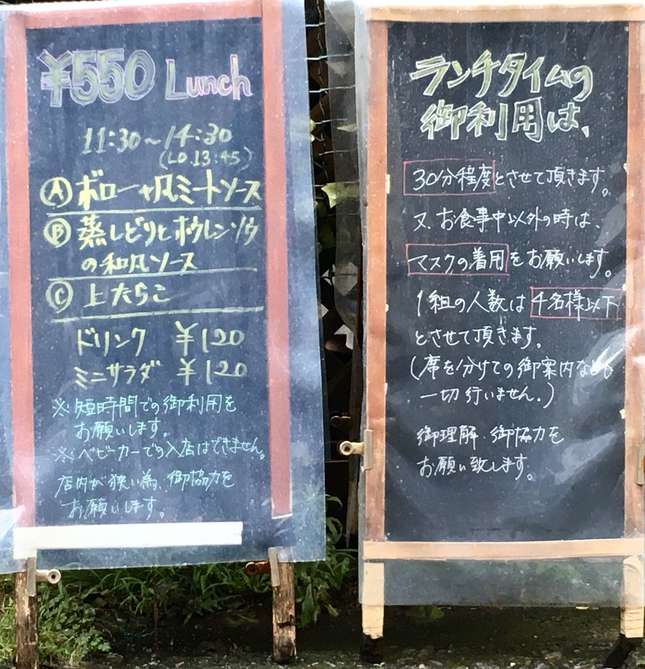 ¥550 Lunch
11:30～14:30
(LO.13:45)
Ⓐ ボローャ風ミートソース
Ⓑ 蒸しどりとホウレンソウ
の和風ソース
Ⓒ 上たらこ
ドリンク ¥120
ミニサラダ ¥120
※ 短時間での御利用を
お願いします。
※ ベビーカーでの入店はできません。
店内が狭い為、御協力を
お願いします。
ランチタイムの
御利用は、
30分程度とさせて頂きます。
又、お食事中以外の時は、
マスクの着用をお願いします。
1組の人数は4名様以下
とさせて頂きます。
(席を分けての御案内なども
一切行いません。)
御理解、御協力を
お願い致します。